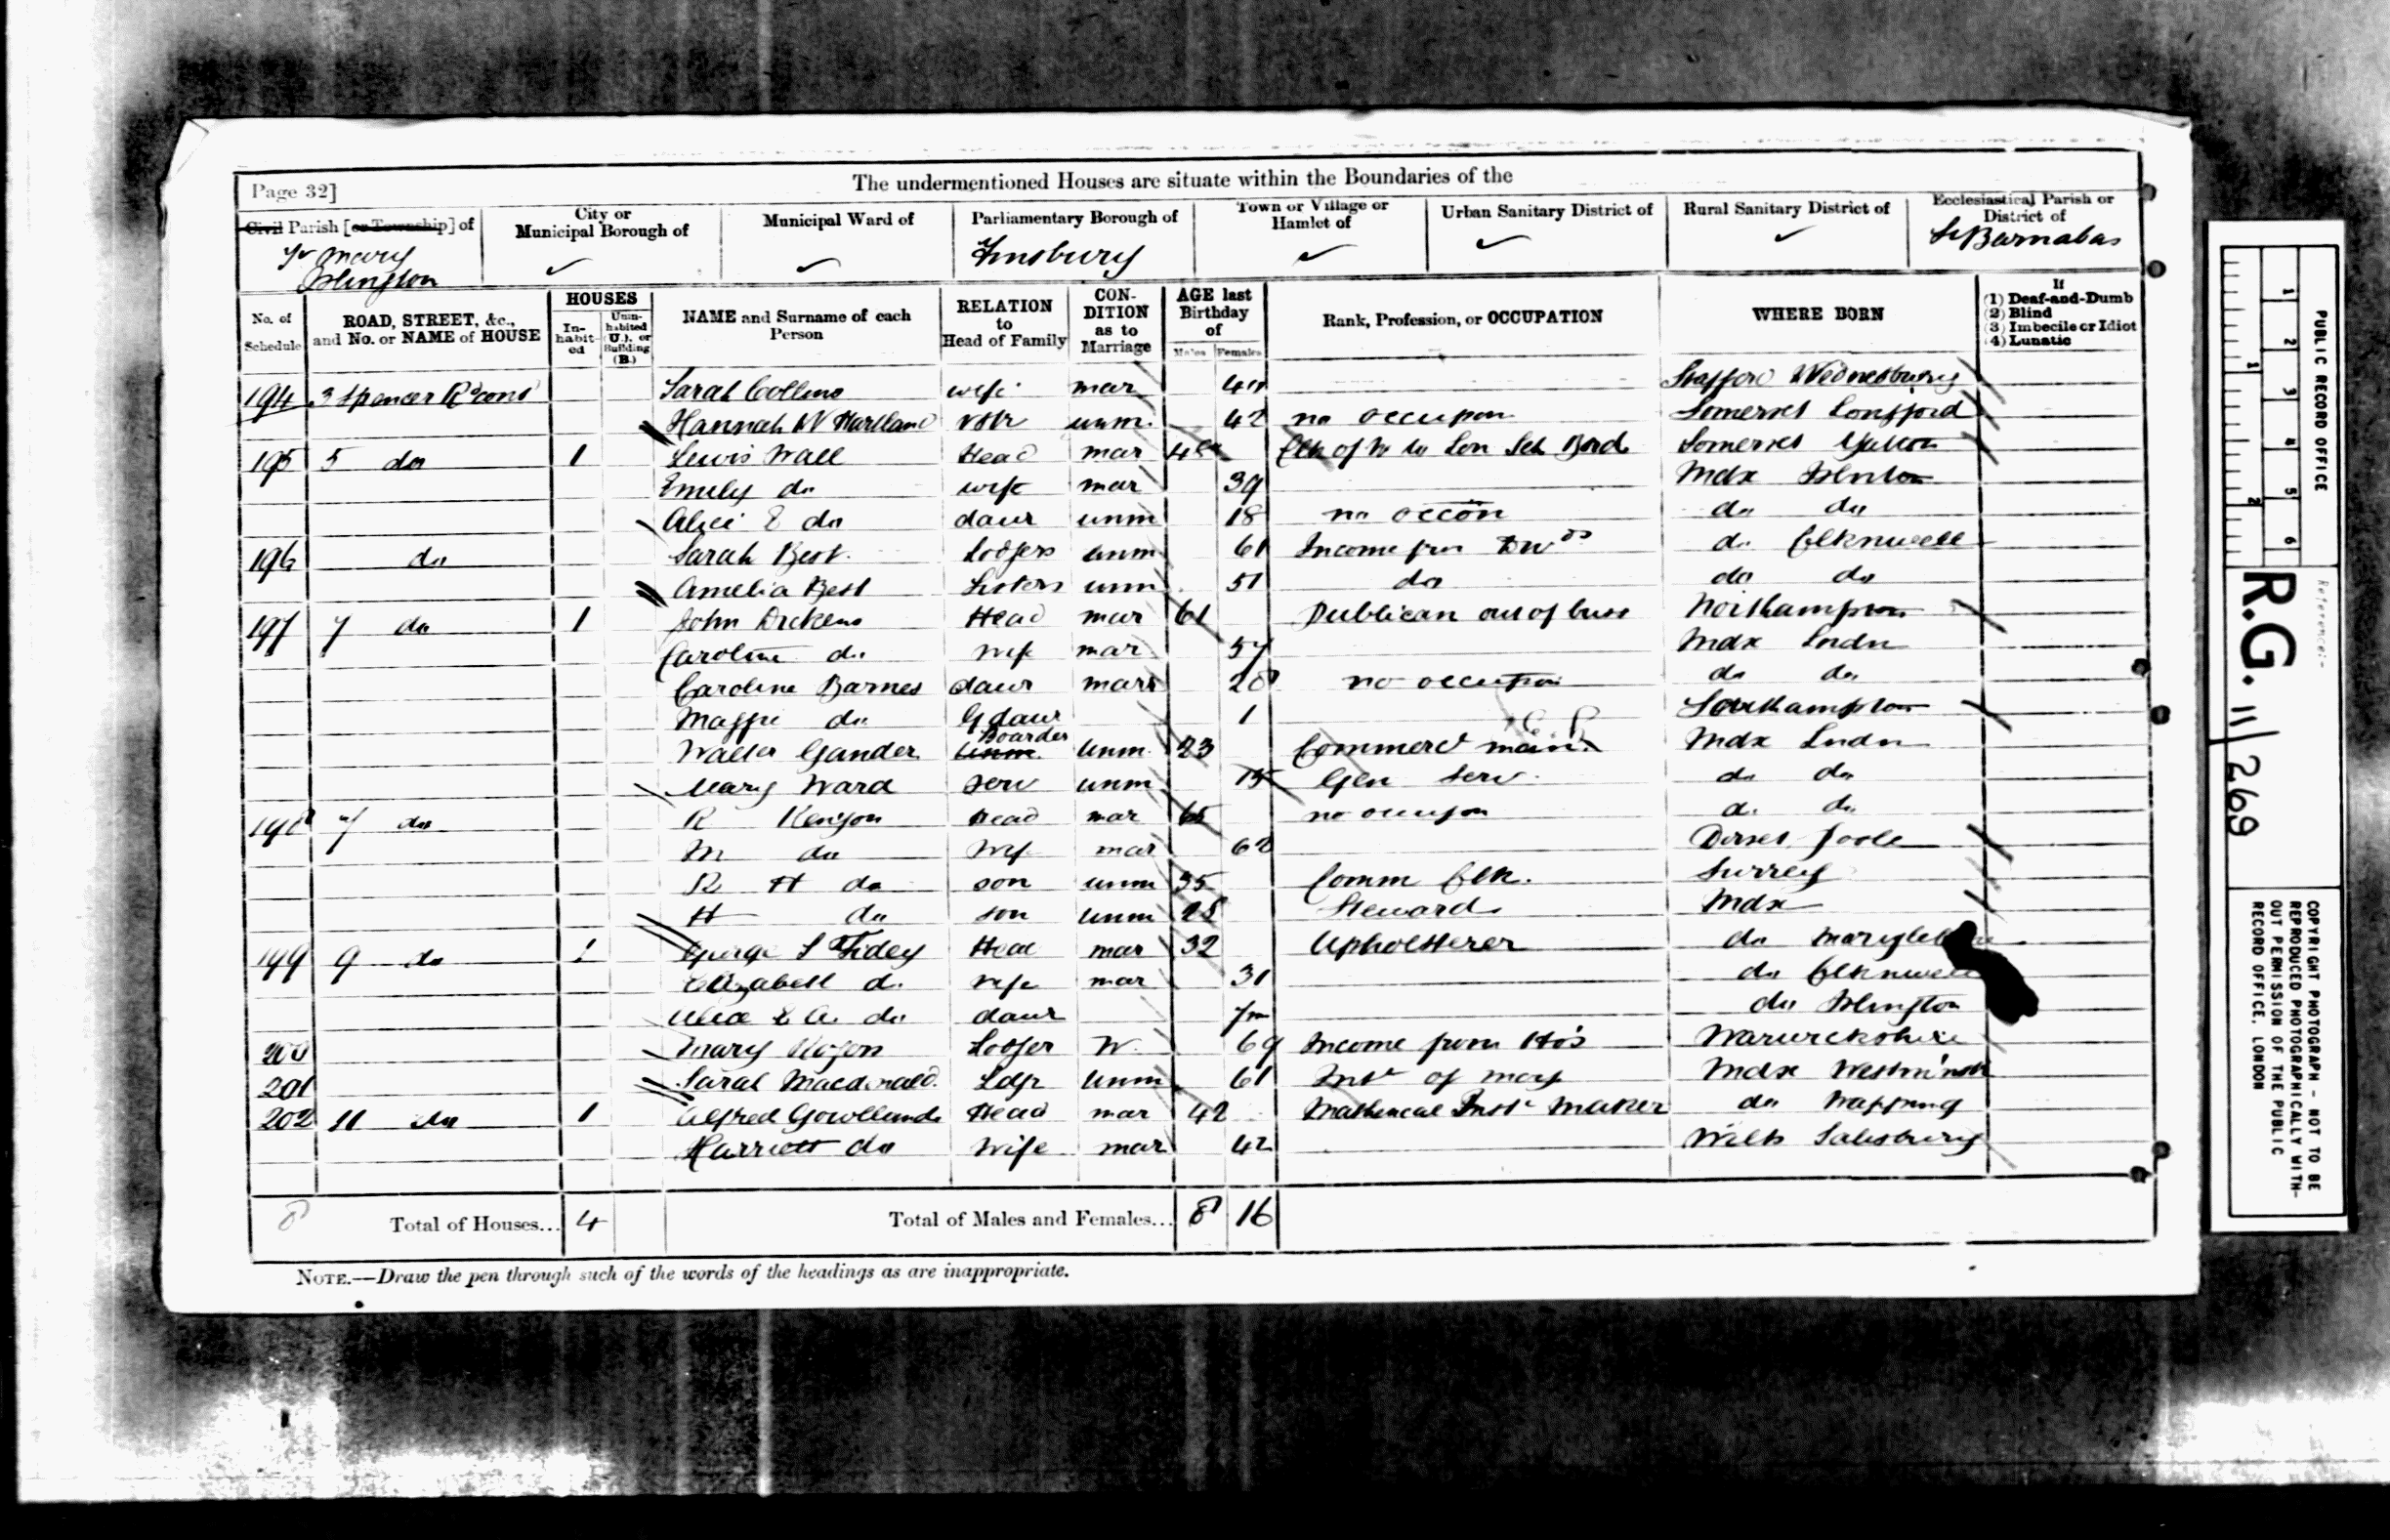 Page 32]
The undermentioned Houses are situate within the Boundaries of the
Civil Parish [or Township] of
City or Municipal Borough of
Municipal Ward of
Parliamentary Borough of
Town or Village or Hamlet of
Urban Sanitary District of
Rural Sanitary District of
Ecclesiastical Parish or District of
St Mary Islington
Finsbury
St Barnabas
No. of Schedule
ROAD, STREET, &c., and No. or NAME of HOUSE
HOUSES
In-habit-ed
Unin-habited (U.), or Building (B.)
NAME and Surname of each Person
RELATION to Head of Family
CON-DITION as to Marriage
AGE last Birthday of
Males Females
Rank, Profession, or OCCUPATION
WHERE BORN
If
(1) Deaf-and-Dumb
(2) Blind
(3) Imbecile or Idiot
(4) Lunatic
194 3 Spencer Rd Sarah Collins wife mar Stafford Wednesbury
Hannah W Hartland unm. 42 no occupon Somerset
195 5 do 1 Lewis Wall Head mar Clk of Lon Sch Bord Somerset
Emily do wife mar 39 Mdx
Alice E do daur unm 18 no occon do do
196 do Sarah Best Lodgers unm 61 Income do Clknwell
Amelia Best Sisters unm 51 do do do
197 7 do 1 John Dickens Head mar 61 Publican out of buss Northampton
Caroline do wife mar 57 Mdx Lndn
Caroline Barnes daur mar 28 no occupon do do
Maggie do Gdaur 1 Southampton
Walter Gander Boarder Unm 23 Mdx Lndn
Mary Ward serv unm 15 Gen Serv do do
198 7 do R Kenyon Head mar 65 no occupon do do
M do Wife mar 62 Dorset Poole
R H do son unm 35 Comm Clk. Surrey
H do son unm 28 Steward Mdx
199 9 do 1 George S Tidey Head mar 32 Upholsterer do Marylebone
Elizabeth do wife mar 31 do Clknwell
Alice E A do daur 7m do Islington
200 Mary Lodger W. 69 Income from Ho's Warwickshire
201 Sarah Macdonald Ldgr Unm 61 Westminstr
202 11 do 1 Alfred Gowlland Head mar 42 Mathemcal Inst Maker do Wapping
Harriett do Wife mar 42 Wilts Salisbury
8 Total of Houses... 4 Total of Males and Females... 8 16
NOTE.—Draw the pen through such of the words of the headings as are inappropriate.
PUBLIC RECORD OFFICE
Reference:-
R.G. 11/269
COPYRIGHT PHOTOGRAPH - NOT TO BE
REPRODUCED PHOTOGRAPHICALLY WITH-
OUT PERMISSION OF THE PUBLIC
RECORD OFFICE, LONDON